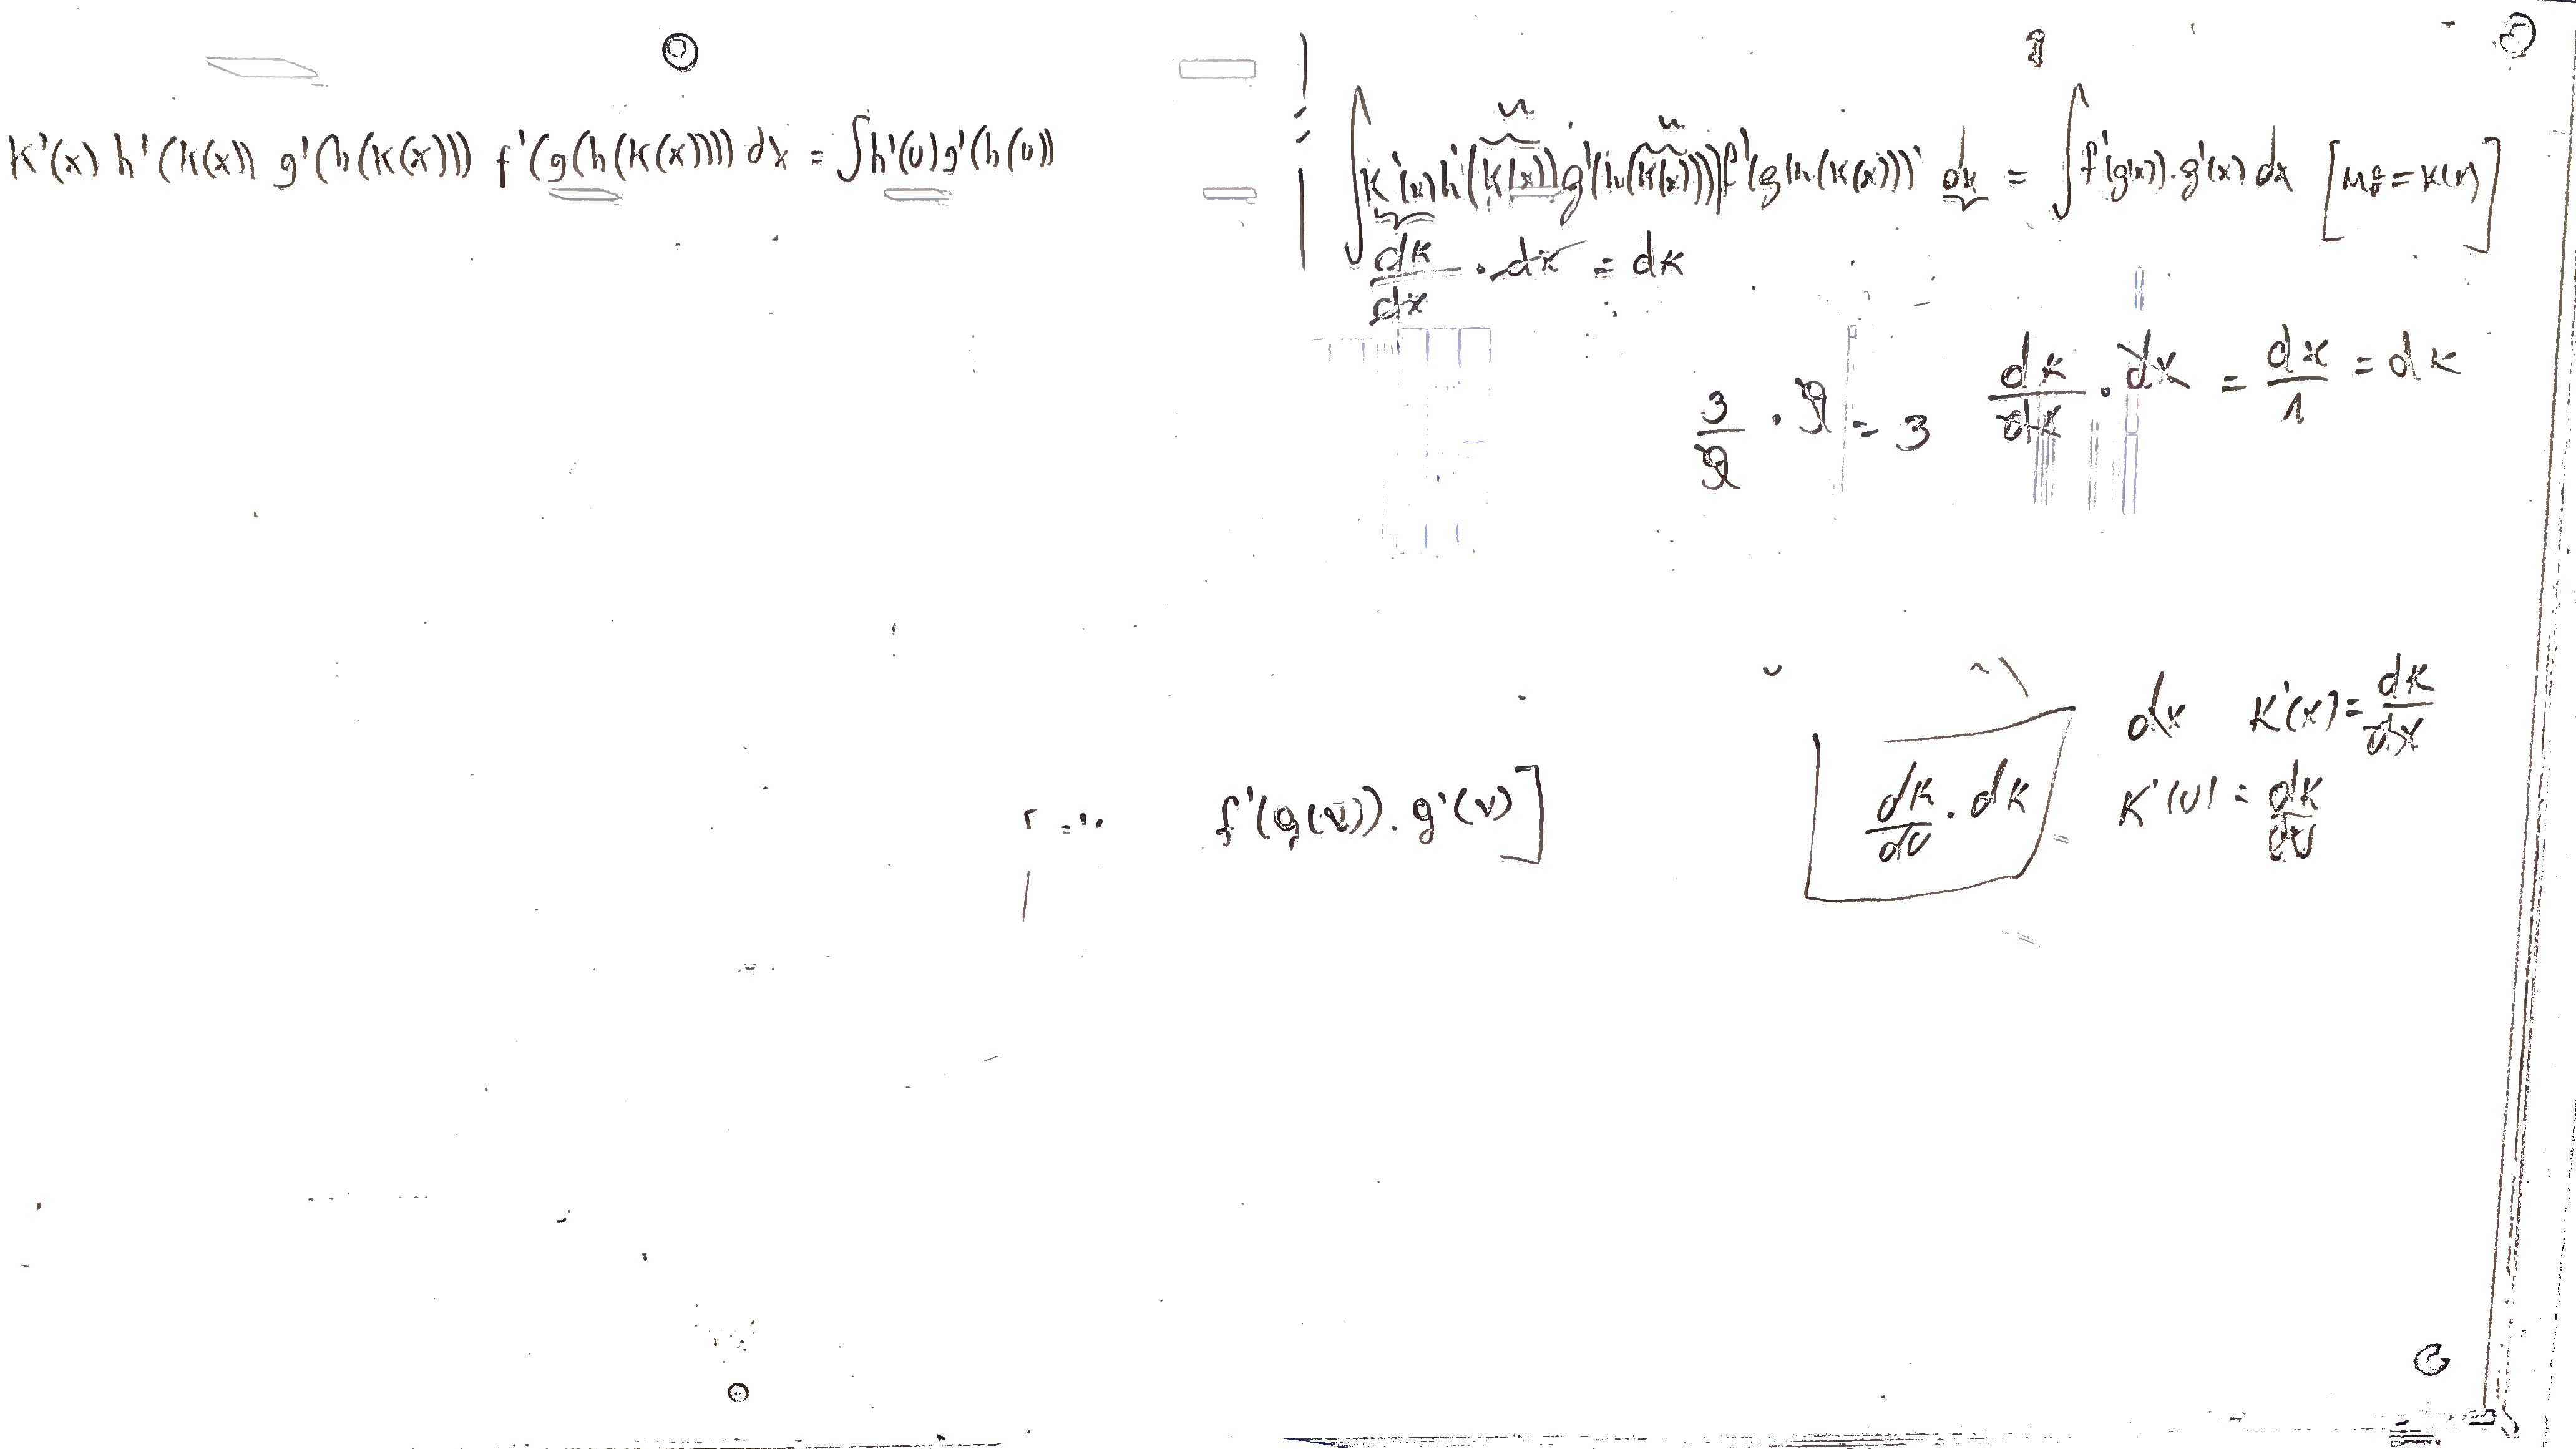 K'(x) h'(k(x)) g'(h(k(x))) f'(g(h(k(x)))) dx = ∫h'(u)g'(h(u))
u u
∫ K'(x) h'(k(x)) g'(h(k(x))) f'(g(h(k(x)))) dx = ∫ f'(g(x)).g'(x) dx [u = k(x)]
dk/dx . dx = dk
3/2 . 2 = 3 dk/dx . dx = dx/1 = dk
dx K'(x) = dk/dx
f'(g(v)).g'(v)] dk/du . dk K'(u) = dk/du